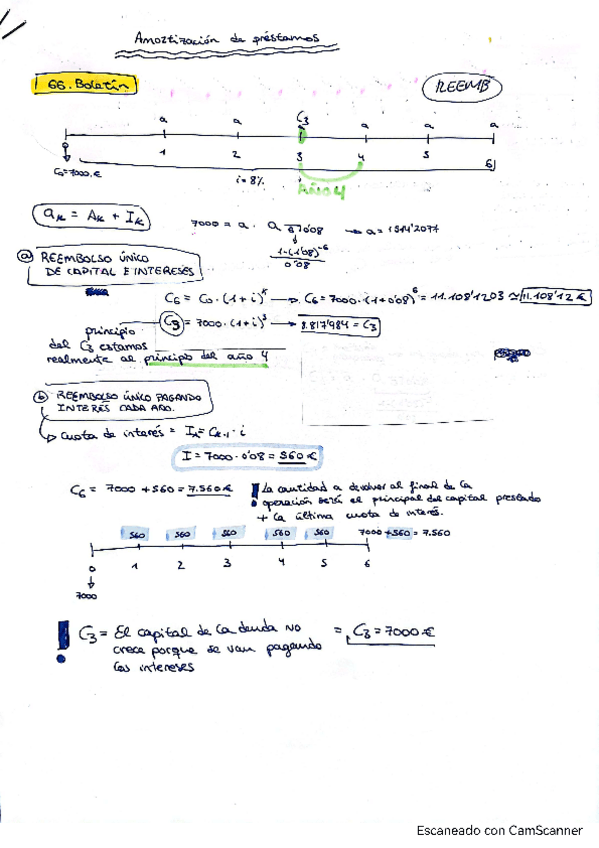 Amortización de préstamos
66. Boletín
REEMB
a a C3 a a a
1 2 3 4 5 6
C0=7000.€
i=8%
AÑO 4
ak = Ak + Ik
7000 = a · a 6 0'08 → a = 1514'2077
1-(1'08)^-6
0'08
a) REEMBOLSO ÚNICO
DE CAPITAL E INTERESES
C6 = C0 · (1+i)^k → C6 = 7000 · (1+0'08)^6 = 11.108'1203 ≈ 11.108'12 €
C3 = 7000 · (1+i)^3 → 8.817'984 = C3
principio
del C3 estamos
realmente al principio del año 4
b) REEMBOLSO ÚNICO PAGANDO
INTERÉS CADA AÑO.
↳ Cuota de interés = Ik = Ck-1 · i
I = 7000 · 0'08 = 560 €
C6 = 7000 + 560 = 7.560 €
! La cantidad a devolver al final de la
operación será el principal del capital prestado
+ la última cuota de interés.
560 560 560 560 560 7000 + 560 = 7.560
0 1 2 3 4 5 6
7000
! C3 = El capital de la deuda no = C3 = 7000 €
crece porque se van pagando
los intereses
Escaneado con CamScanner